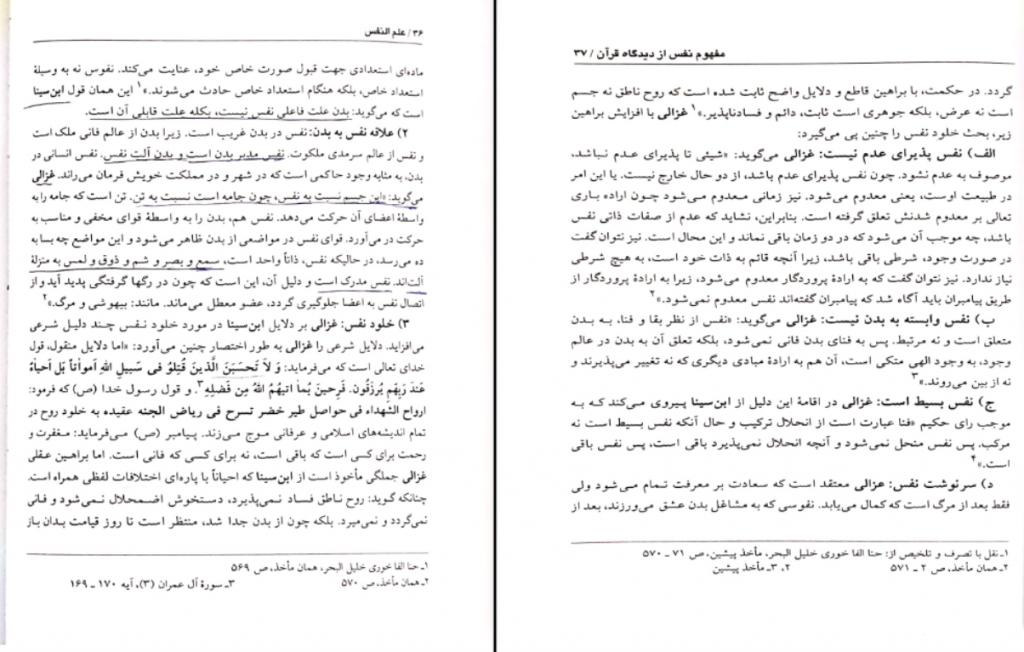 ۳۶/ علم النفس
ماده‌ای استعدادی جهت قبول صورت خاص خود، عنایت می‌کند. نفوس نه به وسیلهٔ
استعداد خاص، بلکه هنگام استعداد خاص حادث می‌شوند.»۱ این همان قول ابن‌سینا
است که می‌گوید: بدن علت فاعلی نفس نیست، بکله علت قابلی آن است.
۲) علاقه نفس به بدن: نفس در بدن غریب است. زیرا بدن از عالم فانی ملک است
و نفس از عالم سرمدی ملکوت. نفس مدبر بدن است و بدن آلت نفس. نفس انسانی در
بدن، به مثابه وجود حاکمی است که در شهر و در مملکت خویش فرمان می‌راند. غزالی
می‌گوید: «این جسم نسبت به نفس، چون جامه است نسبت به تن. تن است که جامه را به
واسطهٔ اعضای آن حرکت می‌دهد. نفس هم، بدن را به واسطهٔ قوای مخفی و مناسب به
حرکت در می‌آورد. قوای نفس در مواضعی از بدن ظاهر می‌شود و این مواضع چه بسا به
ده می‌رسد، در حالیکه نفس، ذاتاً واحد است، سمع و بصر و شم و ذوق و لمس به منزلهٔ
آلت‌اند. نفس مدرک است و دلیل آن، این است که چون در رگها گرفتگی پدید آید و از
اتصال نفس به اعضا جلوگیری گردد، عضو معطل می‌ماند. مانند: بیهوشی و مرگ.»۲
۳) خلود نفس: غزالی بر دلایل ابن‌سینا در مورد خلود نفس چند دلیل شرعی
می‌افزاید. دلایل شرعی را غزالی به طور اختصار چنین می‌آورد: «اما دلایل منقول، قول
خدای تعالی است که می‌فرماید: وَ لاَ تَحسَبَنَ الَّذینَ قُتِلُو فی سَبیلِ اللهِ اَمواتاً بَل اَحیاهُ
عَندَ رَبِهِم یُرزَقُون. فَرِحینَ بُماَ اتیهُم اللهُ مِن فَضلِهِ۳. و قول رسول خدا (ص) که فرمود:
ارواح الشهداء فی حواصل طیر خضر تسرح فی ریاض الجنه عقیده به خلود روح در
تمام اندیشه‌های اسلامی و عرفانی موج می‌زند. پیامبر (ص) می‌فرماید: مغفرت و
رحمت برای کسی است که باقی است، نه برای کسی که فانی است. اما براهین عقلی
غزالی جملگی مأخوذ است از ابن‌سینا که احیاناً با پاره‌ای اختلافات لفظی همراه است.
چنانکه گوید: روح ناطق فساد نمی‌پذیرد، دستخوش اضمحلال نمی‌شود و فانی
نمی‌گردد و نمی‌میرد. بلکه چون از بدن جدا شد، منتظر است تا روز قیامت بدان باز
۱ـ حنا الفا خوری خلیل البحر، همان مأخذ، ص ۵۶۹
۲ـ همان مأخذ، ص ۵۷۰ ۳ـ سورهٔ آل عمران (۳)، آیه ۱۷۰ ـ ۱۶۹
مفهوم نفس از دیدگاه قرآن / ۳۷
گردد. در حکمت، با براهین قاطع و دلایل واضح ثابت شده است که روح ناطق نه جسم
است نه عرض، بلکه جوهری است ثابت، دائم و فسادناپذیر.»۱ غزالی با افزایش براهین
زیر، بحث خلود نفس را چنین پی می‌گیرد:
الف) نفس پذیرای عدم نیست: غزالی می‌گوید: «شیئی تا پذیرای عدم نباشد،
موصوف به عدم نشود. چون نفس پذیرای عدم باشد، از دو حال خارج نیست. یا این امر
در طبیعت اوست، یعنی معدوم می‌شود. نیز زمانی معدوم می‌شود چون اراده باری
تعالی بر معدوم شدنش تعلق گرفته است. بنابراین، نشاید که عدم از صفات ذاتی نفس
باشد، چه موجب آن می‌شود که در دو زمان باقی نماند و این محال است. نیز نتوان گفت
در صورت وجود، شرطی باقی باشد، زیرا آنچه قائم به ذات خود است، به هیچ شرطی
نیاز ندارد. نیز نتوان گفت که به ارادهٔ پروردگار معدوم می‌شود، زیرا به ارادهٔ پروردگار از
طریق پیامبران باید آگاه شد که پیامبران گفته‌اند نفس معدوم نمی‌شود.»۲
ب) نفس وابسته به بدن نیست: غزالی می‌گوید: «نفس از نظر بقا و فنا، به بدن
متعلق است و نه مرتبط. پس به فنای بدن فانی نمی‌شود، بلکه تعلق آن به بدن در عالم
وجود، به وجود الهی متکی است، آن هم به ارادهٔ مبادی دیگری که نه تغییر می‌پذیرند و
نه از بین می‌روند.»۳
ج) نفس بسیط است: غزالی در اقامهٔ این دلیل از ابن‌سینا پیروی می‌کند که به
موجب رای حکیم «فنا عبارت است از انحلال ترکیب و حال آنکه نفس بسیط است نه
مرکب. پس نفس منحل نمی‌شود و آنچه انحلال نمی‌پذیرد باقی است، پس نفس باقی
است.»۴
د) سرنوشت نفس: عزالی معتقد است که سعادت بر معرفت تمام می‌شود ولی
فقط بعد از مرگ است که کمال می‌یابد. نفوسی که به مشاغل بدن عشق می‌ورزند، بعد از
۱ـ نقل با تصرف و تلخیص از: حنا الفا خوری خلیل البحر، مأخذ پیشین، ص ۷۱ ـ ۵۷۰
۲ـ همان مأخذ، ص ۲ ـ ۵۷۱ ۲، ۳ـ مأخذ پیشین